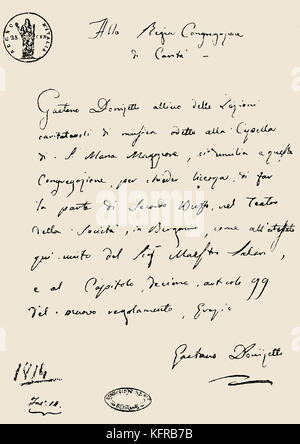 Alla Regia Congregazione
di Carità
Gaetano Donizetti allievo delle Lezioni
caritatevoli di musica dette alla Cappella
di S. Maria Maggiore, si umilia a questa
Congregazione, per chieder licenza di far
la parte di Secondo Buffo, nel Teatro
della Società, in Bergamo, come all'attestato
qui unito del Sig. Maestro Salari,
e al Capitolo, decimo, articolo 99
del nuovo regolamento, Grazie
Gaetano Donizetti
1814
alamy
Image ID: KFRB7B
www.alamy.com